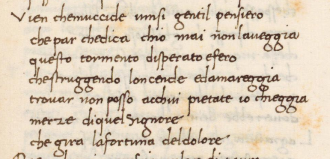 Vien chemuccide unsi gentil pensiero
che par chedica chio mai non laveggia
questo tormento disperato efero
chestruggendo loncende edamareggia
trovar non posso acchui pietate io chieggia
merze diquel signore
che gira lafortuna deldolore